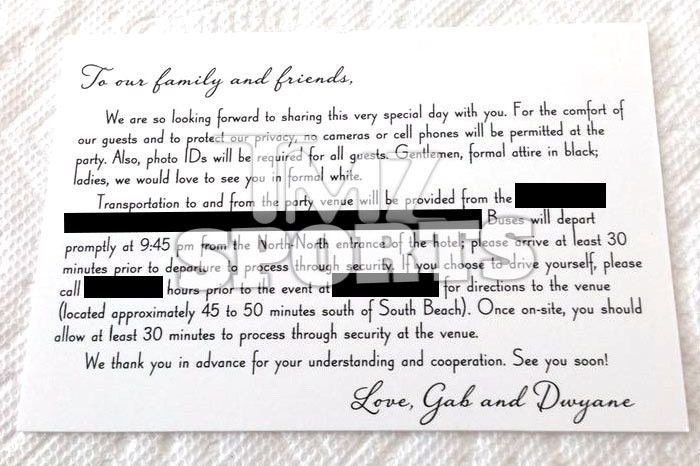 To our family and friends,
We are so looking forward to sharing this very special day with you. For the comfort of
our guests and to protect our privacy, no cameras or cell phones will be permitted at the
party. Also, photo IDs will be required for all guests. Gentlemen, formal attire in black;
ladies, we would love to see you in formal white.
Transportation to and from the party venue will be provided from the
Buses will depart
promptly at 9:45 pm from the North-North entrance of the hotel; please arrive at least 30
minutes prior to departure to process through security. If you choose to drive yourself, please
call hours prior to the event at for directions to the venue
(located approximately 45 to 50 minutes south of South Beach). Once on-site, you should
allow at least 30 minutes to process through security at the venue.
We thank you in advance for your understanding and cooperation. See you soon!
Love, Gab and Dwyane
TMZ
SPORTS